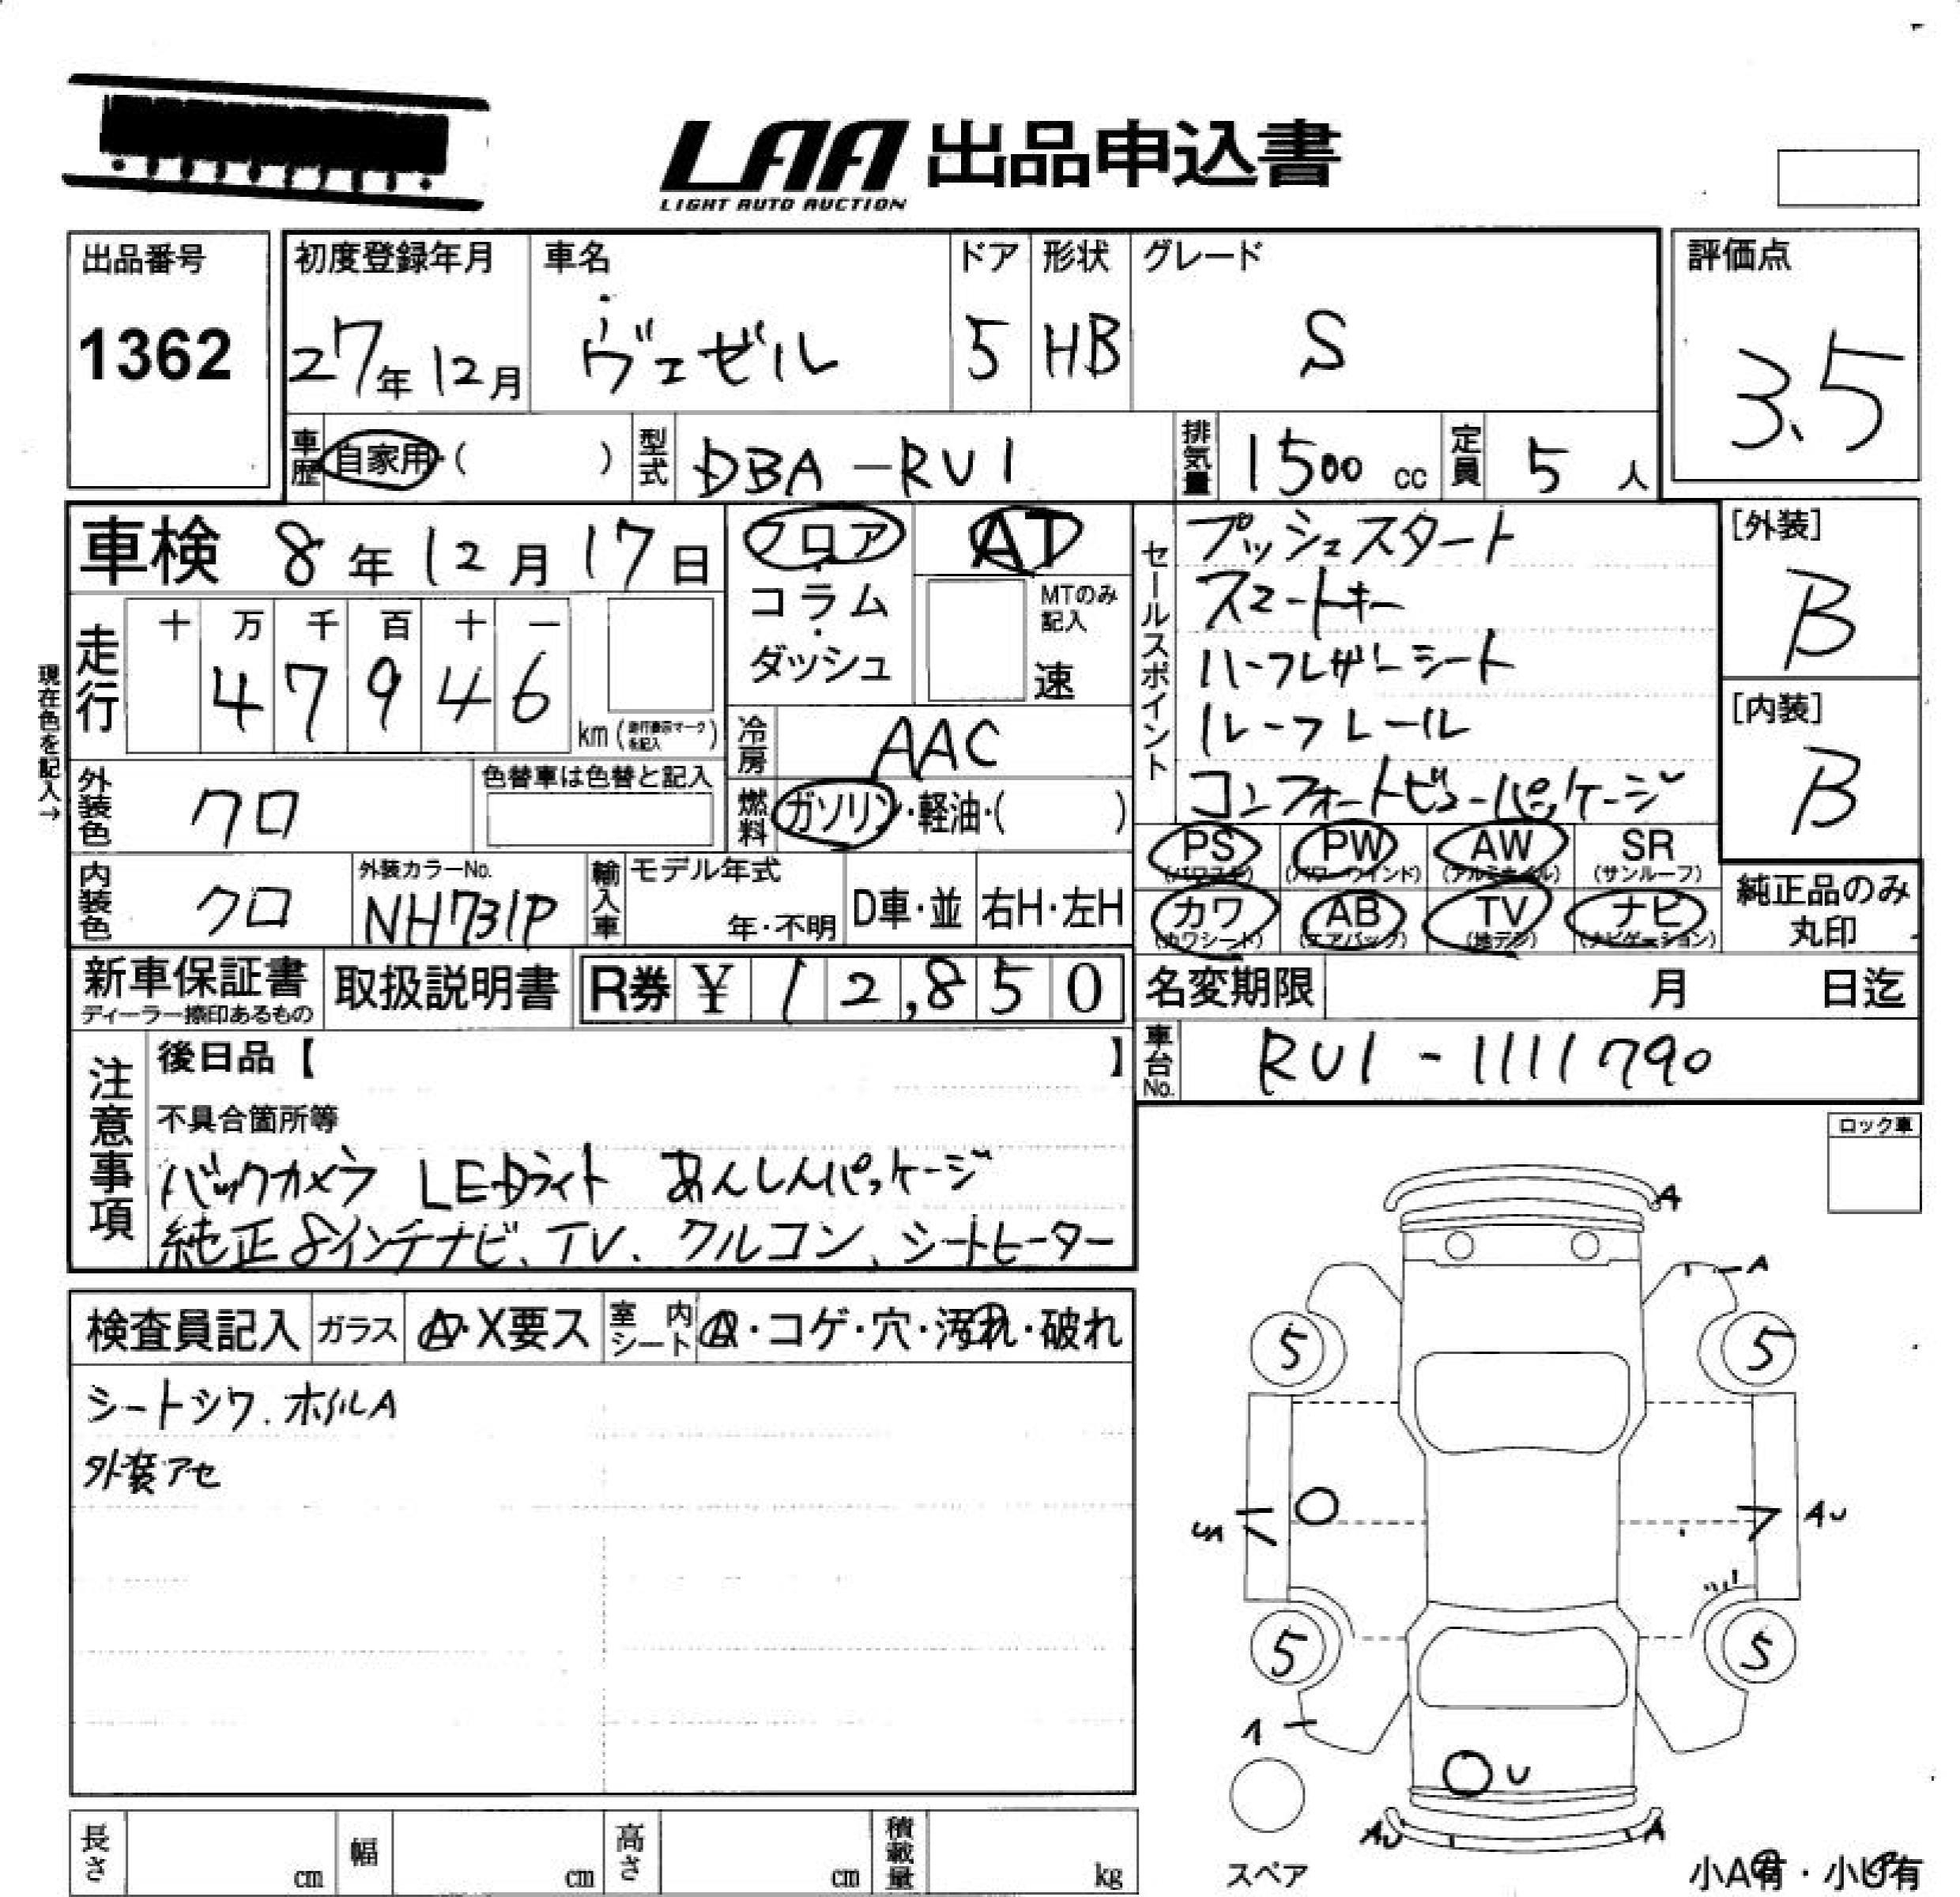 LAA 出品申込書
LIGHT AUTO AUCTION
出品番号
1362
初度登録年月
27年12月
車名
ヴェゼル
ドア
5
形状
HB
グレード
S
評価点
3.5
車歴 自家用・( )
型式 DBA-RU1
排気量 1500 cc
定員 5 人
車検 8年12月17日
フロア・コラム・ダッシュ
AT
MTのみ記入
速
セールスポイント
プッシュスタート
スマートキー
ハーフレザーシート
ルーフレール
コンフォートビューパッケージ
[外装]
B
[内装]
B
現在色を記入→
走行
十 万 千 百 十 一
4 7 9 4 6
km(走行表示マークを記入)
冷房 AAC
燃料 ガソリン・軽油・( )
外装色 クロ
色替車は色替と記入
内装色 クロ
外装カラーNo.
NH731P
輸入車
モデル年式
年・不明
D車・並
右H・左H
PS PW AW SR
(パワステ) (パワーウインド) (アルミホイル) (サンルーフ)
カワ AB TV ナビ
(カワシート) (エアバック) (地デジ) (ナビゲーション)
純正品のみ
丸印
新車保証書
ディーラー捺印あるもの
取扱説明書
R券 ¥ 12,850
名変期限 月 日迄
車台No. RU1-1111790
注意事項
後日品【 】
不具合箇所等
バックカメラ LEDライト あんしんパッケージ
純正8インチナビ、TV、クルコン、シートヒーター
ロック車
検査員記入
ガラス A・X要ス
室内シート
・コゲ・穴・汚れ・破れ
シートシワ. ホイルA
外装アセ
A
A
5 5
AU
5 5
1
U
AU A
スペア
小A有・小U有
長さ cm
幅 cm
高さ cm
積載量 kg